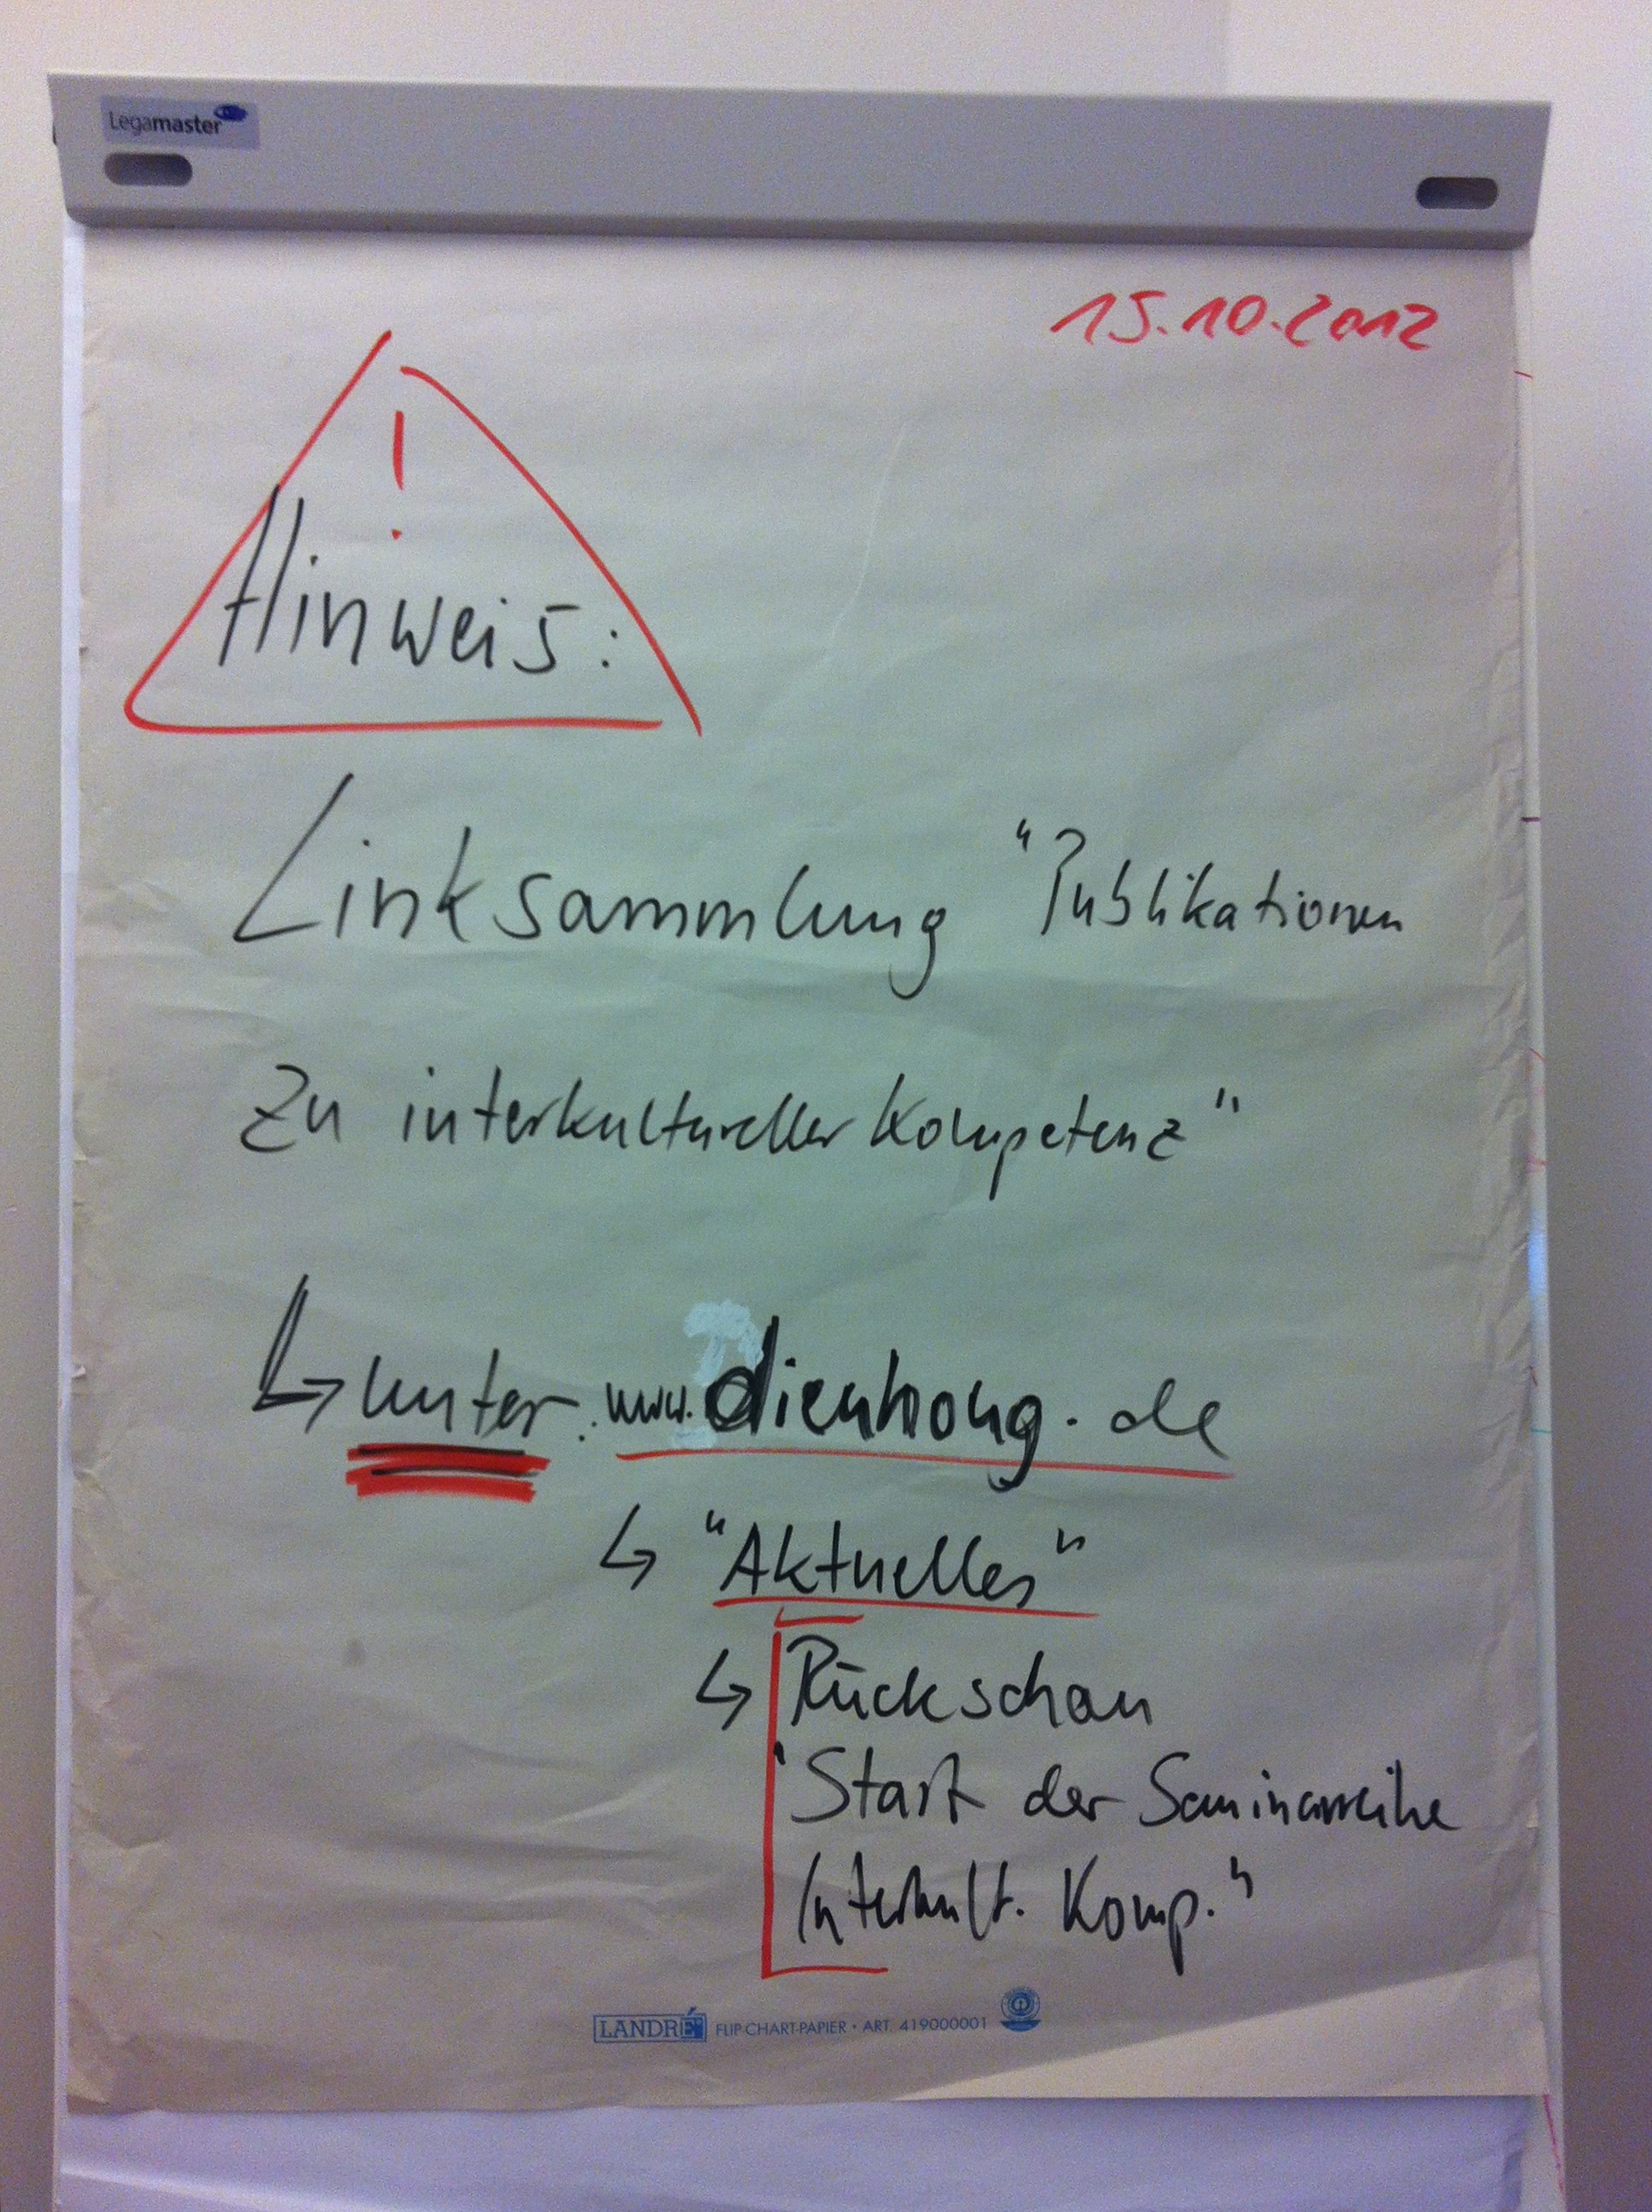 Legamaster
15.10.2012
!
Hinweis:
Linksammlung "Publikationen
Zu interkultureller Kompetenz"
↳ unter: www.dienhong.de
↳ "Aktuelles"
↳ Rückschau
"Start der Seminarreihe
Interkult. Komp."
LANDRÉ FLIP-CHART-PAPIER • ART. 419000001